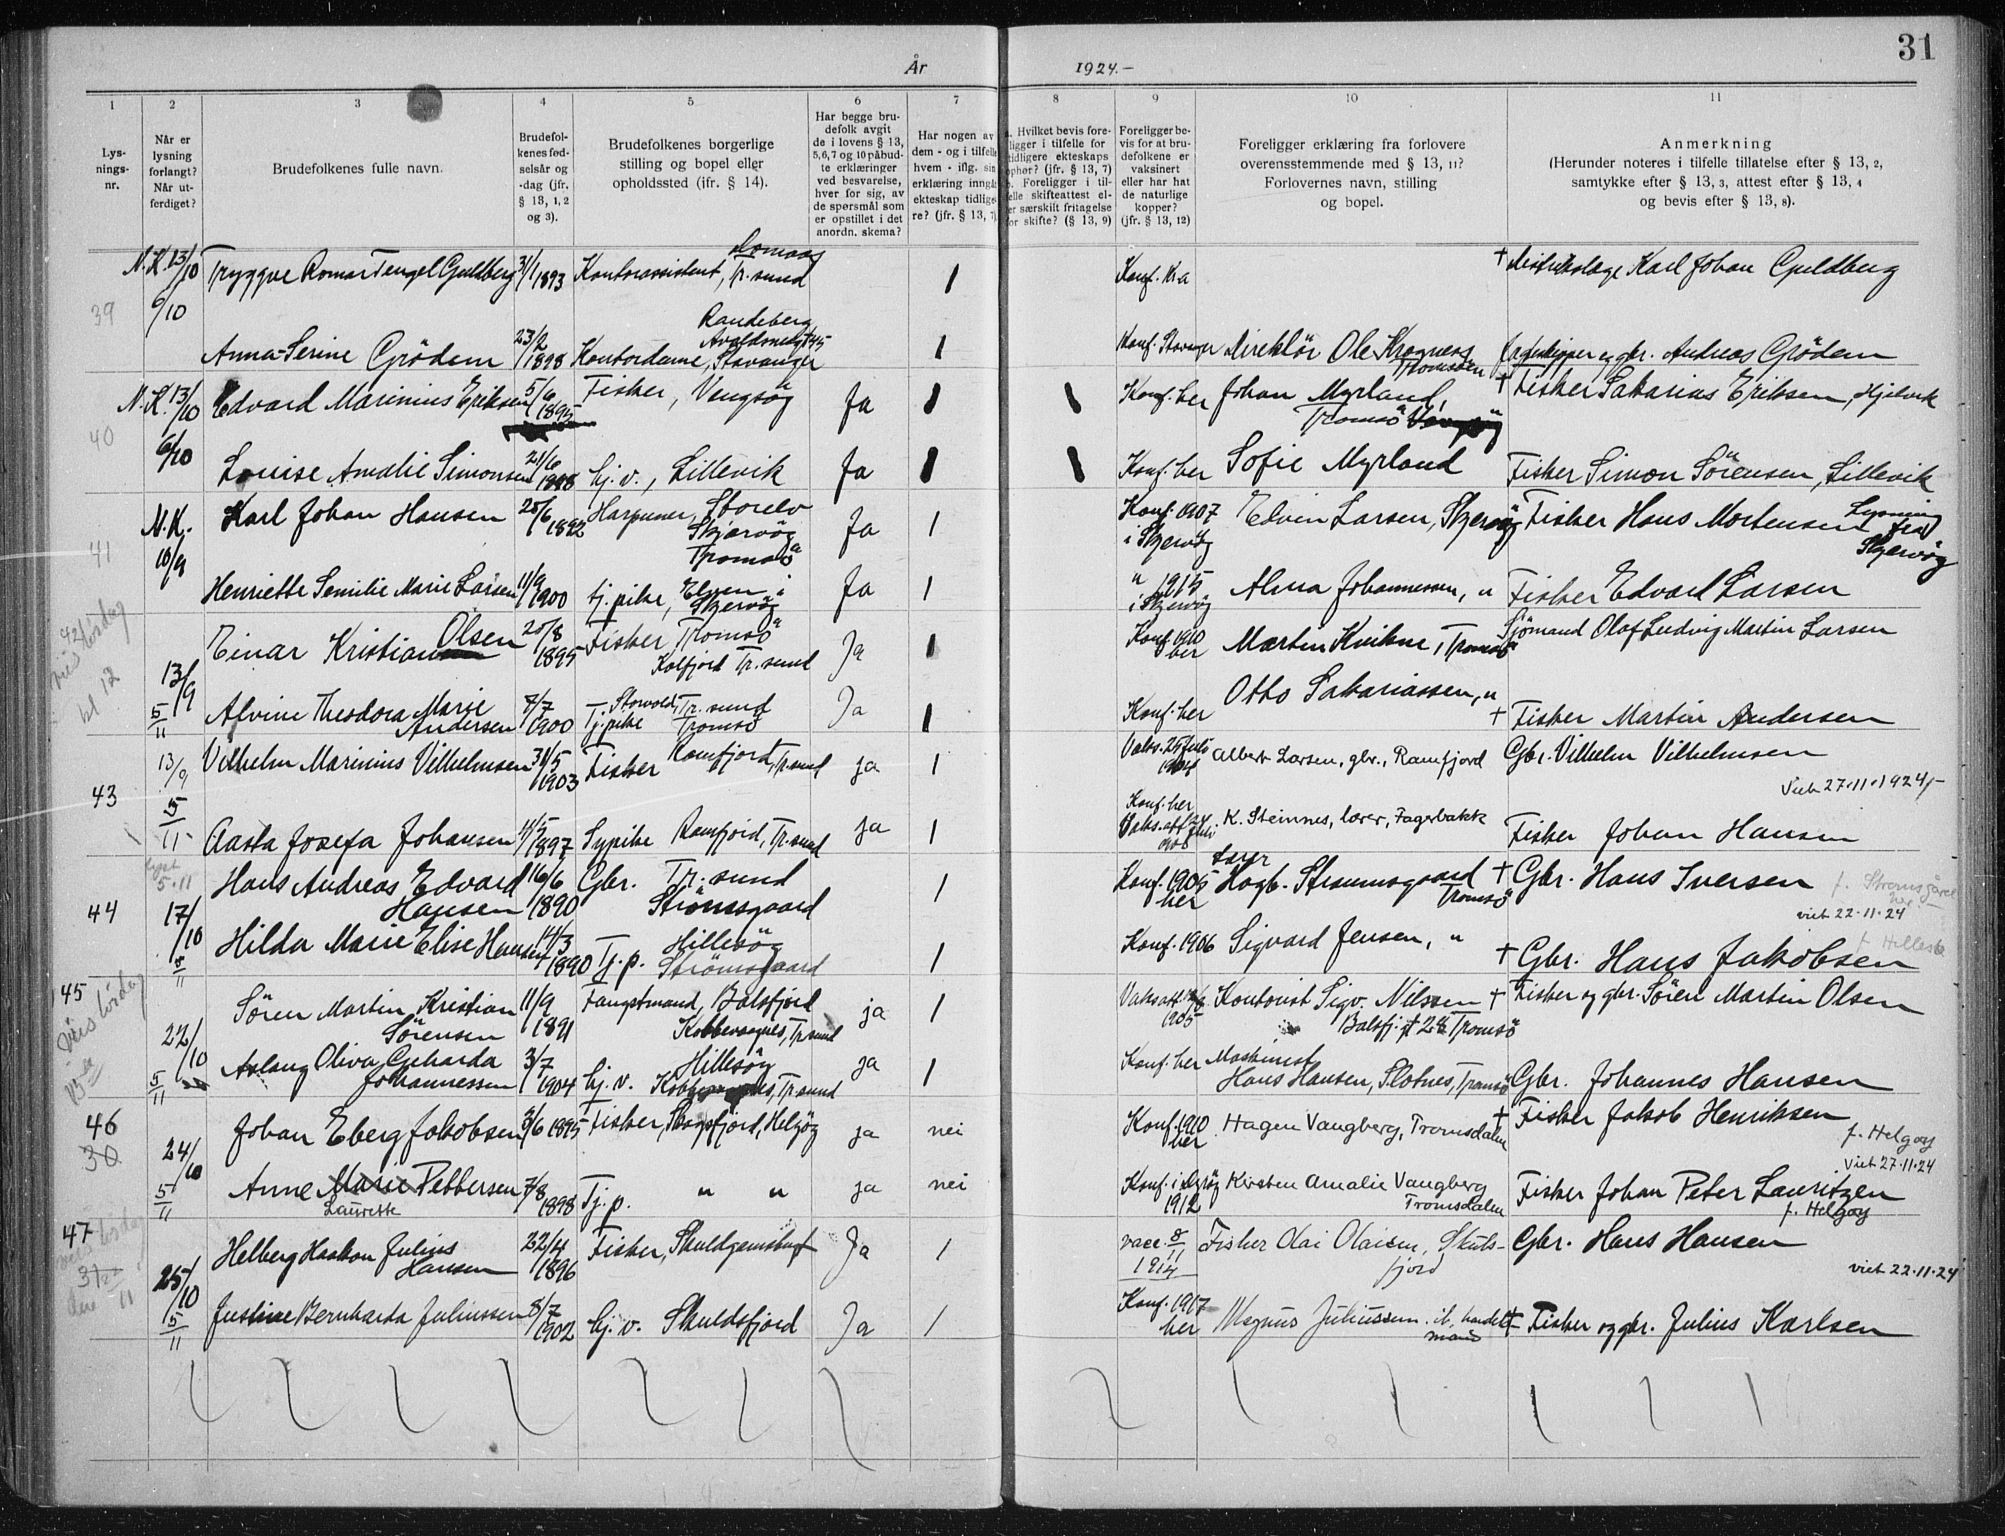 31
År 1924.-
1 2 3 4 5 6 7 8 9 10 11
Lys-
nings-
nr.
Når er
lysning
forlangt?
Når ut-
ferdiget?
Brudefolkenes fulle navn.
Brudefol-
kenes fød-
selsår og
-dag (jfr.
§ 13, 1, 2
og 3).
Brudefolkenes borgerlige
stilling og bopel eller
opholdssted (jfr. § 14).
Har begge bru-
defolk avgit
de i lovens § 13,
5,6,7 og 10 påbud-
te erklæringer
ved besvarelse,
hver for sig, av
de spørsmål som
er opstillet i det
anordn. skema?
Har nogen av
dem - og i tilfelle
hvem - iflg. sin
erklæring inngåt
ekteskap tidlige-
re? (jfr. § 13, 7)
Hvilket bevis fore-
ligger i tilfelle for
tidligere ekteskaps
ophør? (jfr. § 13, 7)
Foreligger i til-
felle skifteattest el-
ler særskilt fritagelse
for skifte? (§ 13, 9)
Foreligger be-
vis for at bru-
defolkene er
vaksinert
eller har hat
de naturlige
kopper?
(jfr. § 13, 12)
Foreligger erklæring fra forlovere
overensstemmende med § 13, 11?
Forlovernes navn, stilling
og bopel.
Anmerkning
(Herunder noteres i tilfelle tillatelse efter § 13, 2,
samtykke efter § 13, 3, attest efter § 13, 4
og bevis efter § 13, 8).
39 N.K. 13/10 Tryggve Romar Tengel Guldberg 31/1 1893 Kontorassistent, Tr.sund 1 Konf. Kra + distriktslæge Karl Johan Guldberg
6/10
Randeberg
Anna-Serine Grödem 23/2 1898 Kontordame, Stavanger 1 Konf. Stavanger Direktör Ole Krogness Tromsöen og gbr. Andreas Grödem
40 N.K. 13/10 Edvard Marinius Eriksen 5/6 1895 Fisker, Vengsög Ja 1 1 Konf. her Johan Myrland, Tromsö + Fisker Sakarias Eriksen, Hjelvik
6/10 Louise Amalie Simonsen 21/6 1898 hj. v., Lillevik Ja 1 1 Konf. her Sofie Myrland Fisker Simon Sörensen, Lillevik
41 N.K. 10/9 Karl Johan Hansen 28/6 1892 Harpuner, Storelv Skjervög Tromsö Ja 1 Konf. 1907 i Skjervög Edvin Larsen, Skjervög Fisker Hans Mortensen Lysning fra Skjervög
Henriette Semilie Marie Larsen 11/9 1900 tj. pike, Elven i Skjervög Ja 1 " 1915 i Skjervög Alma Johannessen, " Fisker Edvard Larsen
42 vies lördag kl 12
13/9 Einar Kristian Olsen 20/8 1895 Fisker, Tromsö Kalfjord Tr.sund Ja 1 Konf. 1910 her Marten Kvikne, Tromsö Sjömand Olaf Ludvig Martin Larsen
5/11 Alvine Theodora Marie Andersen 7/7 1900 Tj.pike Storvold, Tr.sund Tromsö Ja 1 Konf. her Otto Sakariassen, " + Fisker Martin Andersen
43 13/9 Vilhelm Marinius Vilhelmsen 31/5 1903 Fisker Ramfjord, Tr.sund ja 1 Vaks. 25 juli 1904 Albert Larsen, gbr., Ramfjord Gbr. Vilhelm Vilhelmsen
Viet 27.11.1924.-
5/11 Aasta Josefa Johansen 1897 Sypike Ramfjord, Tr.sund ja 1 Konf. her Vaks. att. 24 juli K. Steinnes, lærer, Fagerbakk Fisker Johan Hansen
lyst 5.11
44 17/10 Hans Andreas Edvard Hansen 16/6 1890 Gbr. Tr.sund Strömsgaard 1 Konf. 1905 her Hagb. Straumsgaard Tromsö + Gbr. Hans Iversen f. Strømsgård
viet 22.11.24
5/11 Hilda Marie Elise Hansen 14/3 1890 Tj. p. Hillesög Strömsgaard 1 Konf. 1906 Sigvard Jensen, " + Gbr. Hans Jakobsen f. Hillesö
45 Vies lördag
22/10 Sören Martin Kristian Sörensen 11/9 1891 Fangstmand, Balsfjord Tr.sund ja 1 Vaksatt. 1905 Kontorist Sigv. Nilssen Tromsö + Fisker og gbr. Sören Martin Olsen
5/11 Aslaug Oliva Gerharda Johannessen 3/7 1904 hj. v. Hillesög Tr.sund ja 1 Konf. her Maskinist Hans Hansen, Slotnes, Tromsö Gbr. Johannes Hansen
46 30 24/10 Johan Eberg Jakobsen 3/6 1895 Fisker, Skogsfjord, Helgög ja nei Konf. 1910 her Hagen Vangberg, Tromsdalen + Fisker Jakob Henriksen f. Helgøy
Viet 27.11.24
5/11 Anne Marie Pettersen Laurette 7/8 1898 Tj. p. " " ja nei Konf. i 1912 Kirsten Amalie Vangberg Tromsdalen Fisker Johan Peter Lauritzen f. Helgøy
47 25/10 Helberg Haakon Julius Hansen 22/4 1896 Fisker, Ja 1 vacc. 8/11 1914 Fisker Olai Olaisen, Skuls-
fjord Gbr. Hans Hansen
viet 22.11.24
5/11 Justine Bernharda Juliussen 8/7 1902 hj. v. Skuldsfjord Ja 1 Konf. 1917 her Magnus Juliussen ib. handels-
mand + Fisker og gbr. Julius Karlsen